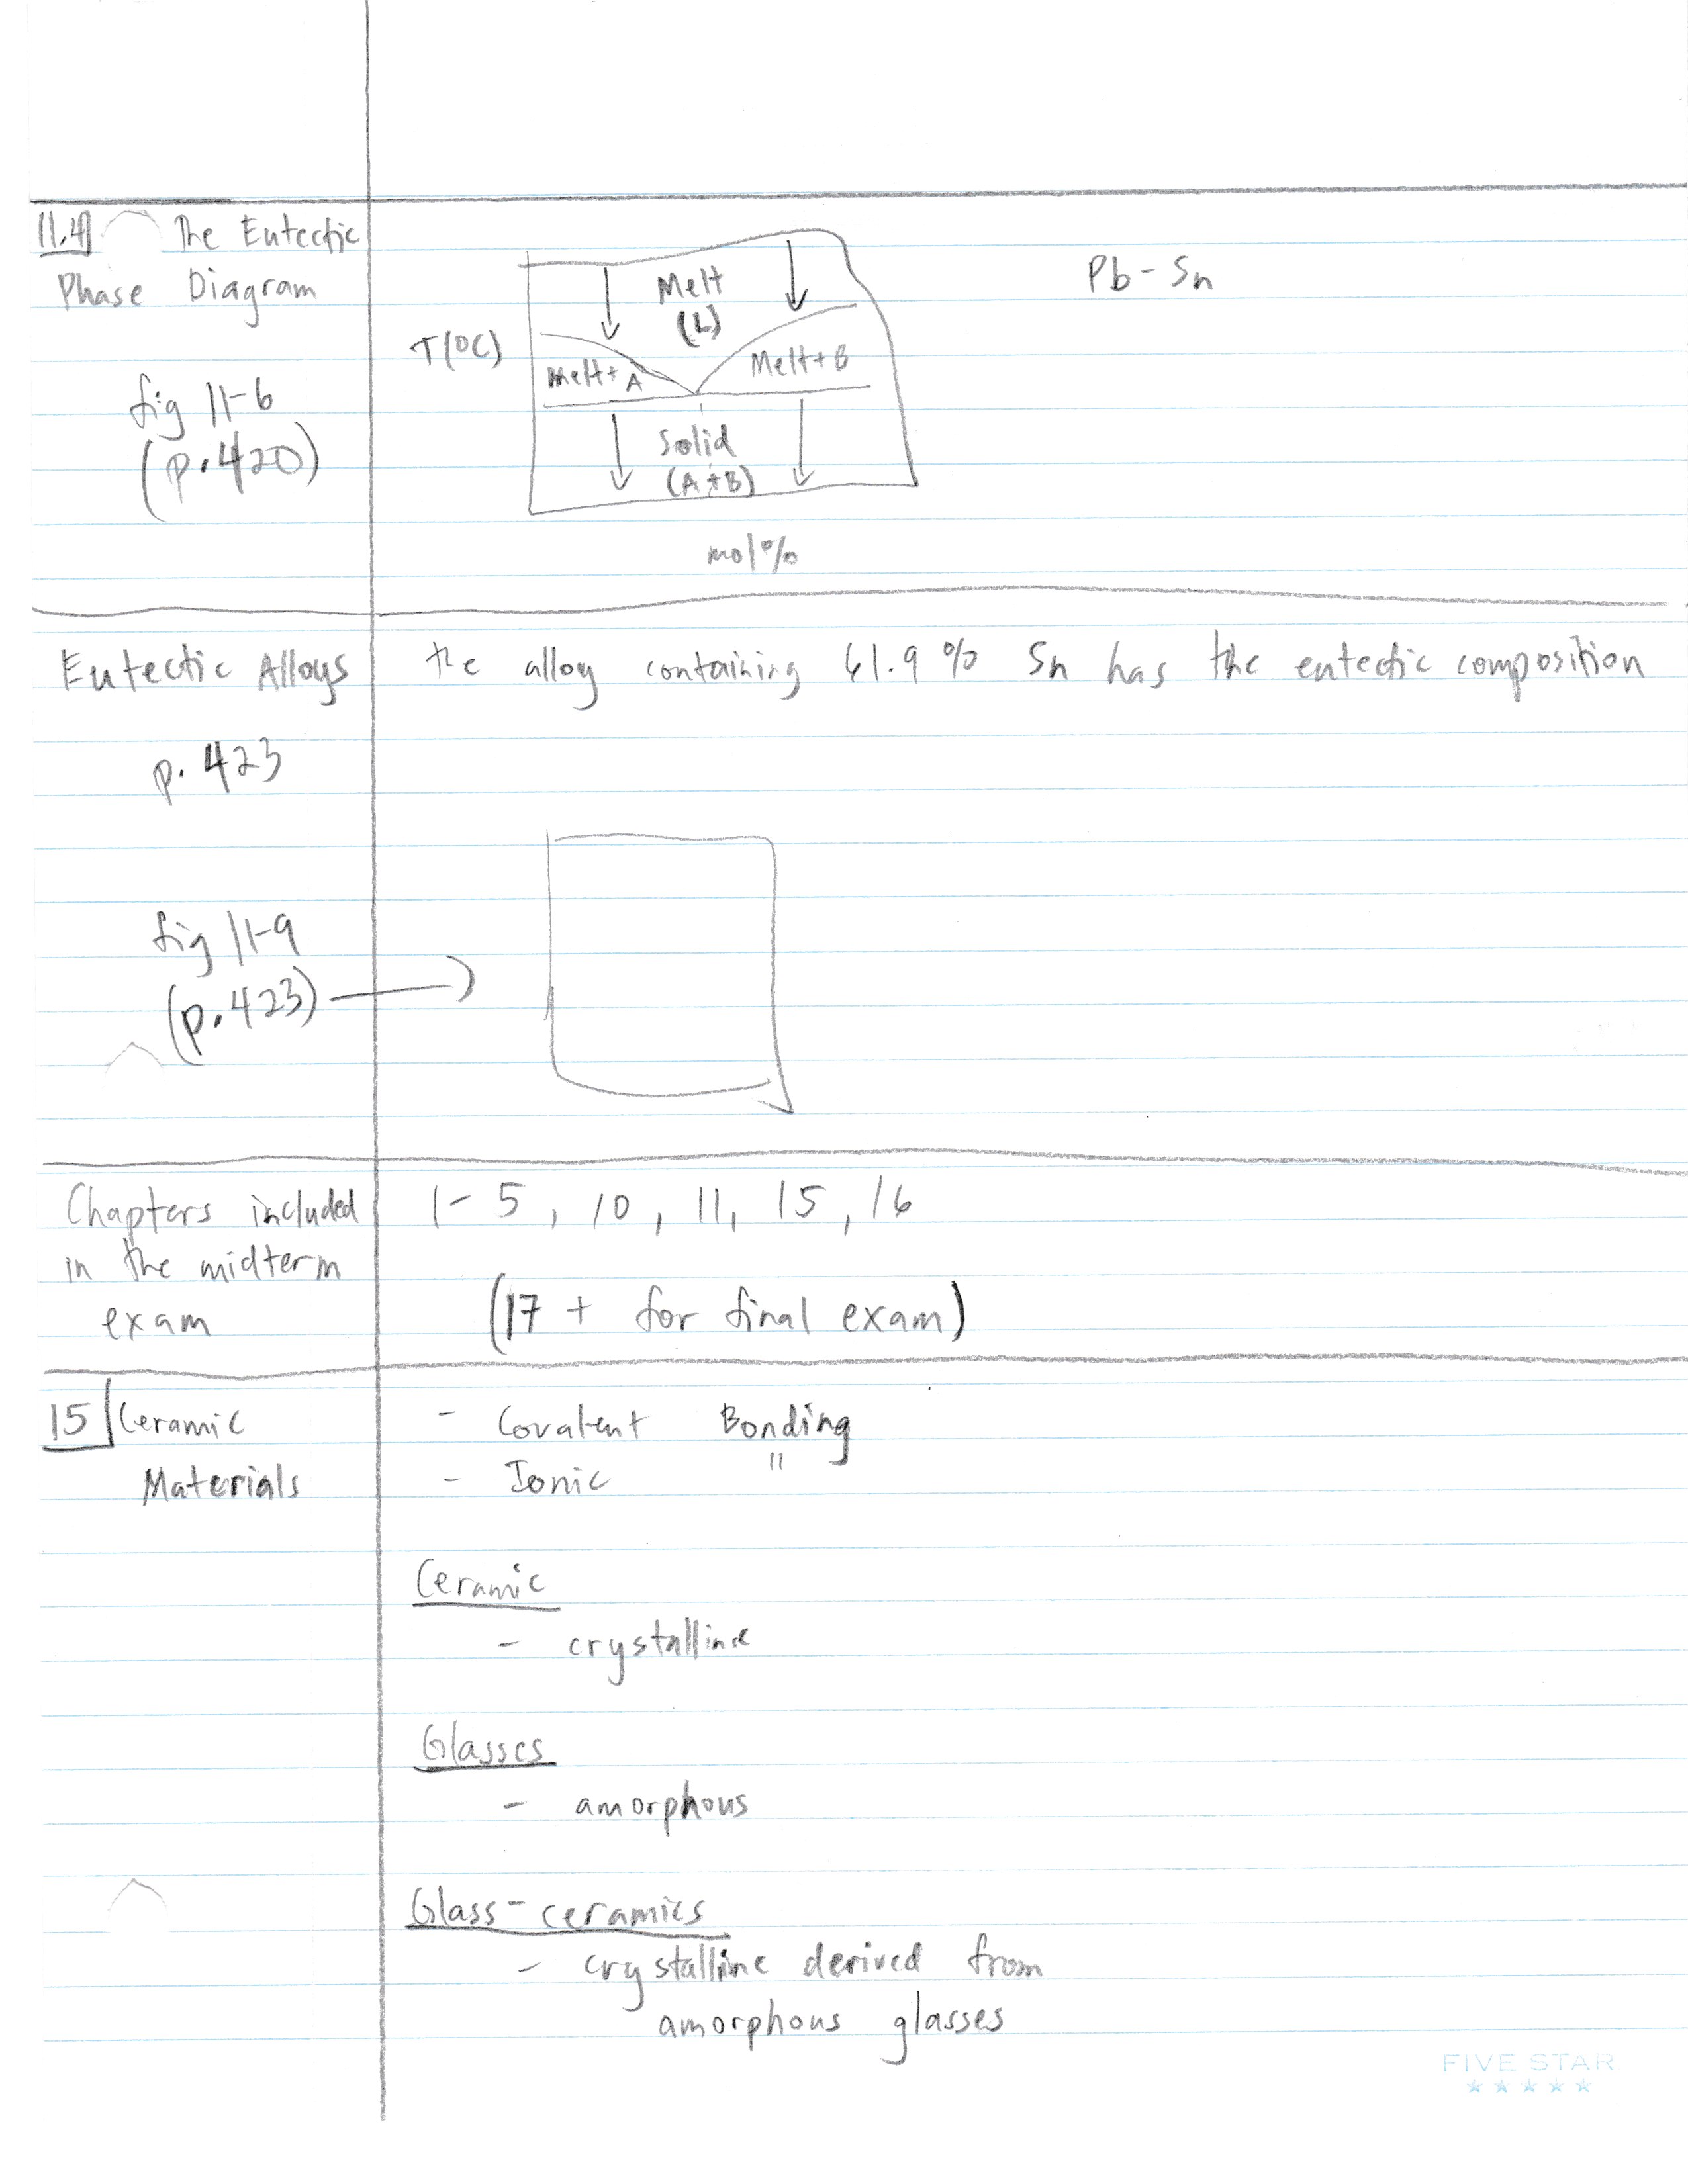 11.4 The Eutectic
Phase Diagram
fig 11-6
(p.420)
T(°C)
Melt
(L)
Melt+A
Melt+B
Solid
(A+B)
mol%
Pb-Sn
Eutectic Alloys
the alloy containing 61.9% Sn has the eutectic composition
p. 423
fig 11-9
(p.423)
Chapters included
in the midterm
exam
1-5, 10, 11, 15, 16
(17+ for final exam)
15 Ceramic
Materials
- Covalent Bonding
- Ionic "
Ceramic
- crystalline
Glasses
- amorphous
Glass-ceramics
- crystalline derived from
amorphous glasses
FIVE STAR